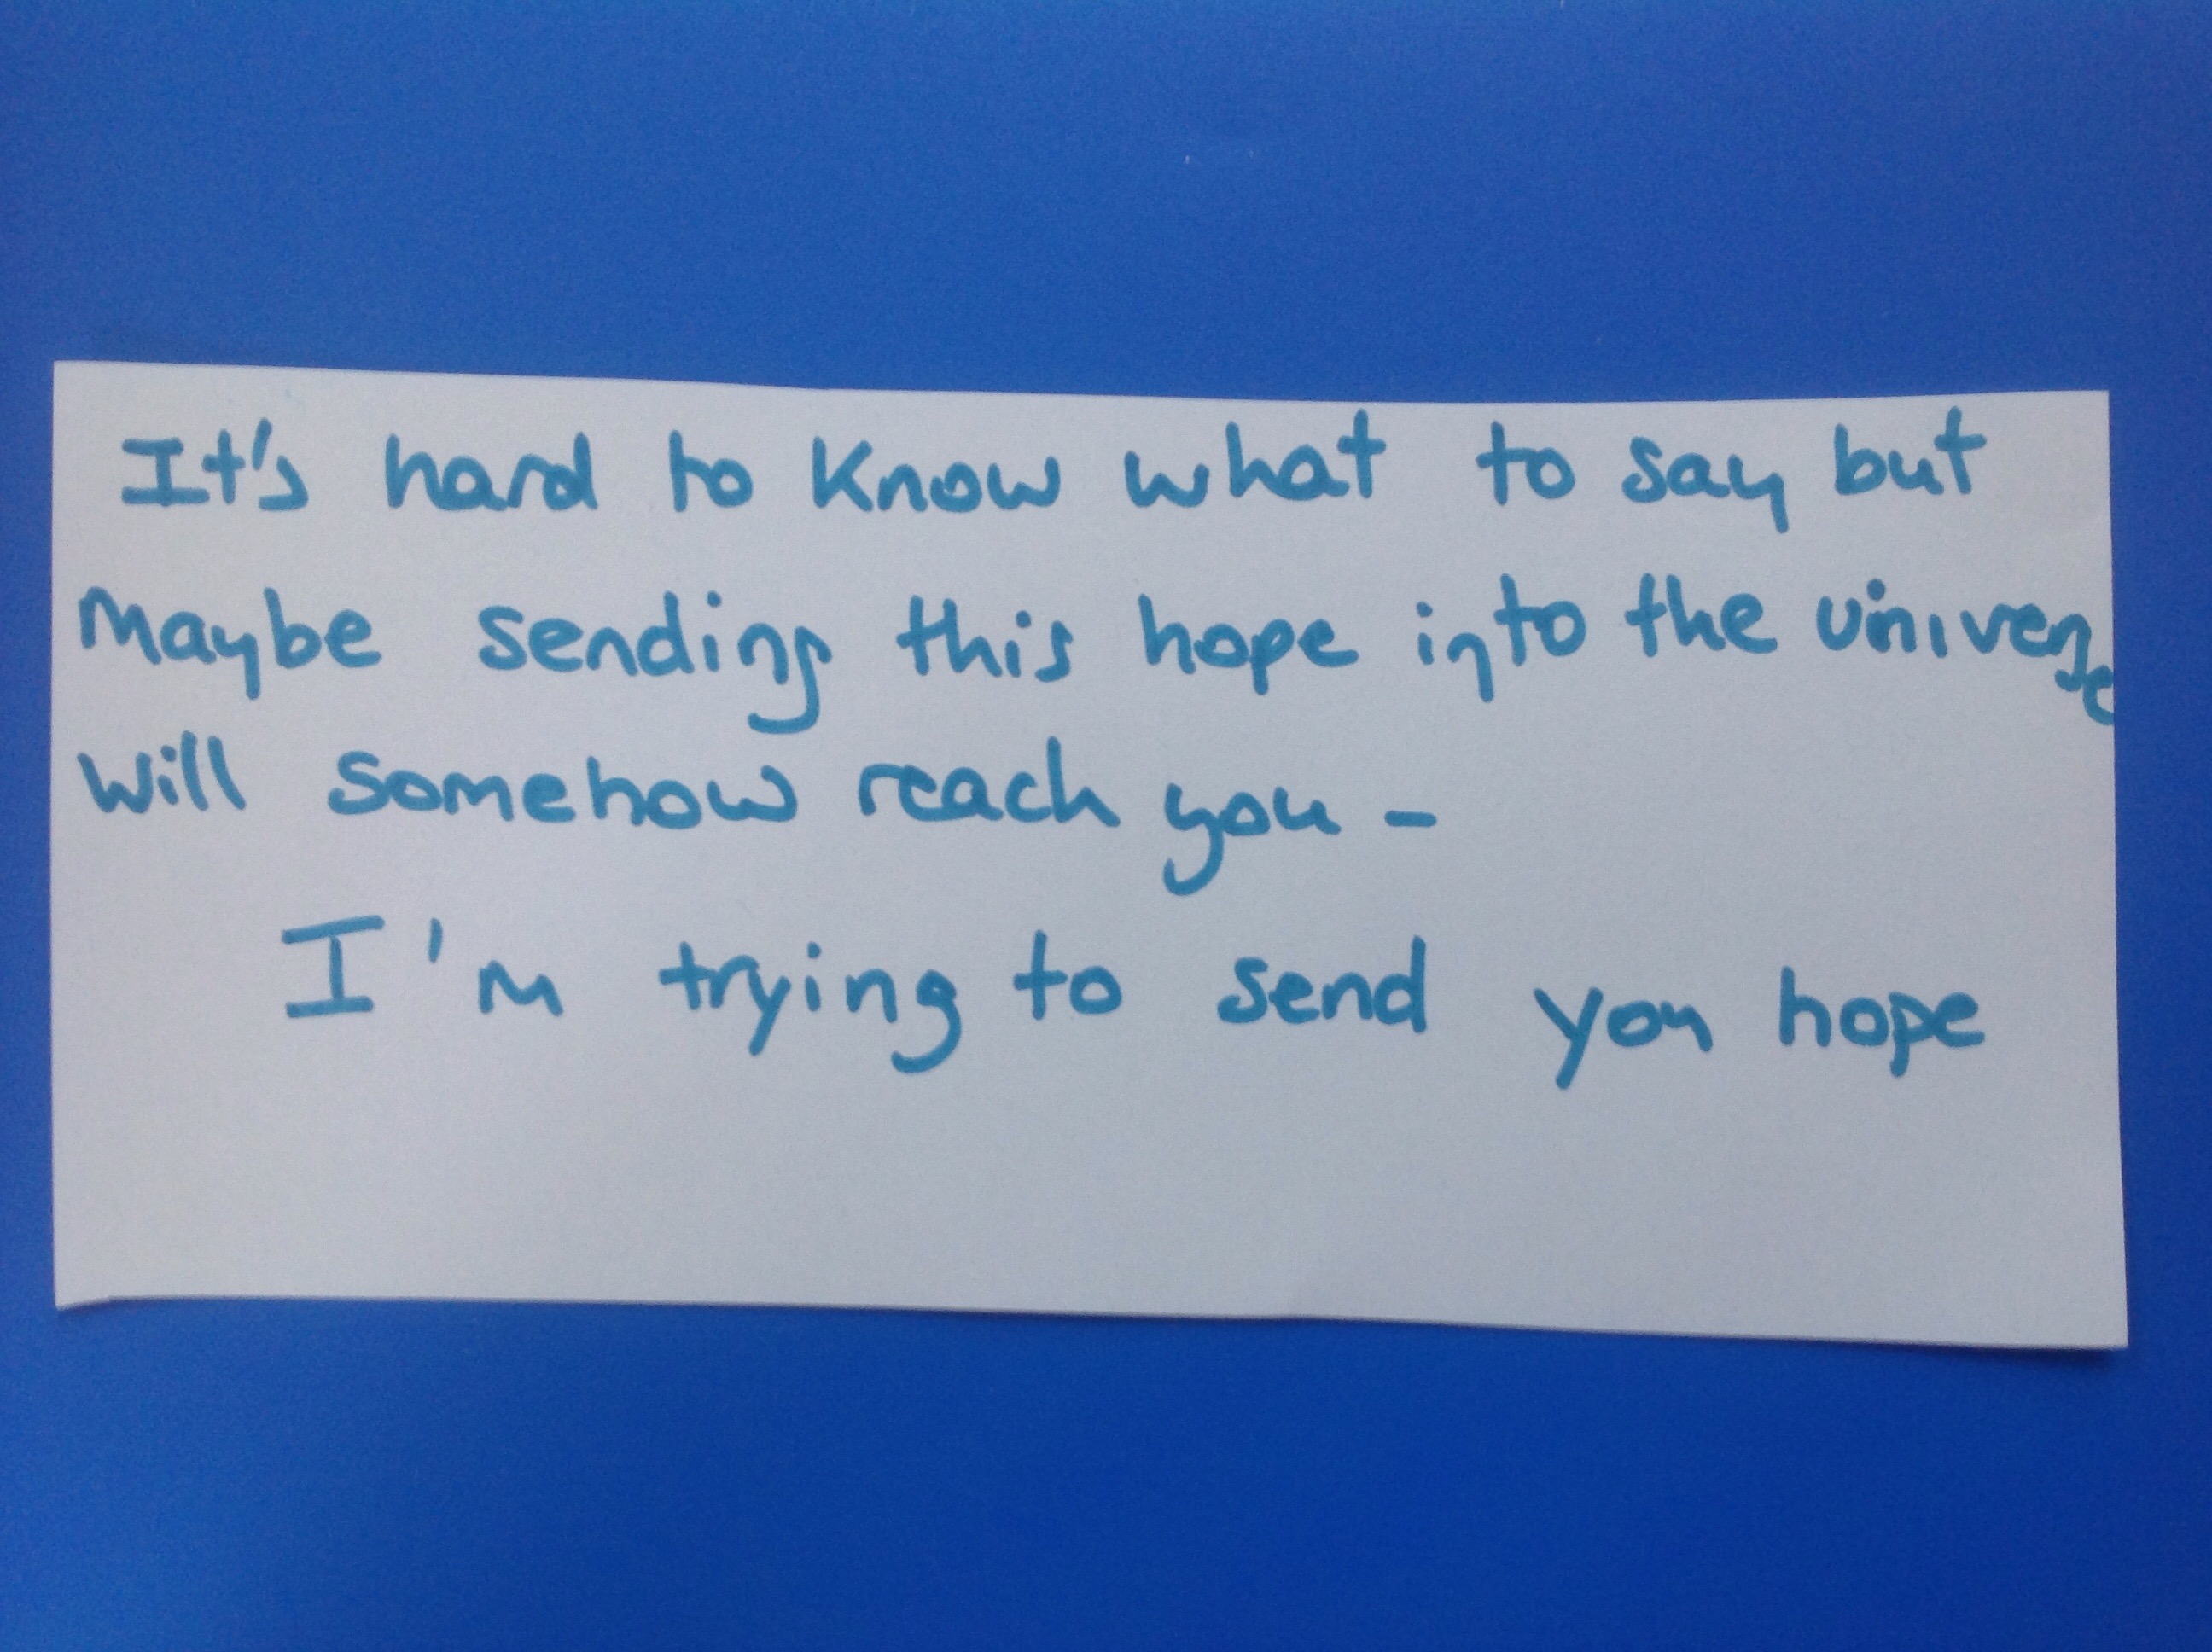 It's hard to know what to say but
maybe sending this hope into the universe
will somehow reach you -
I'm trying to send you hope